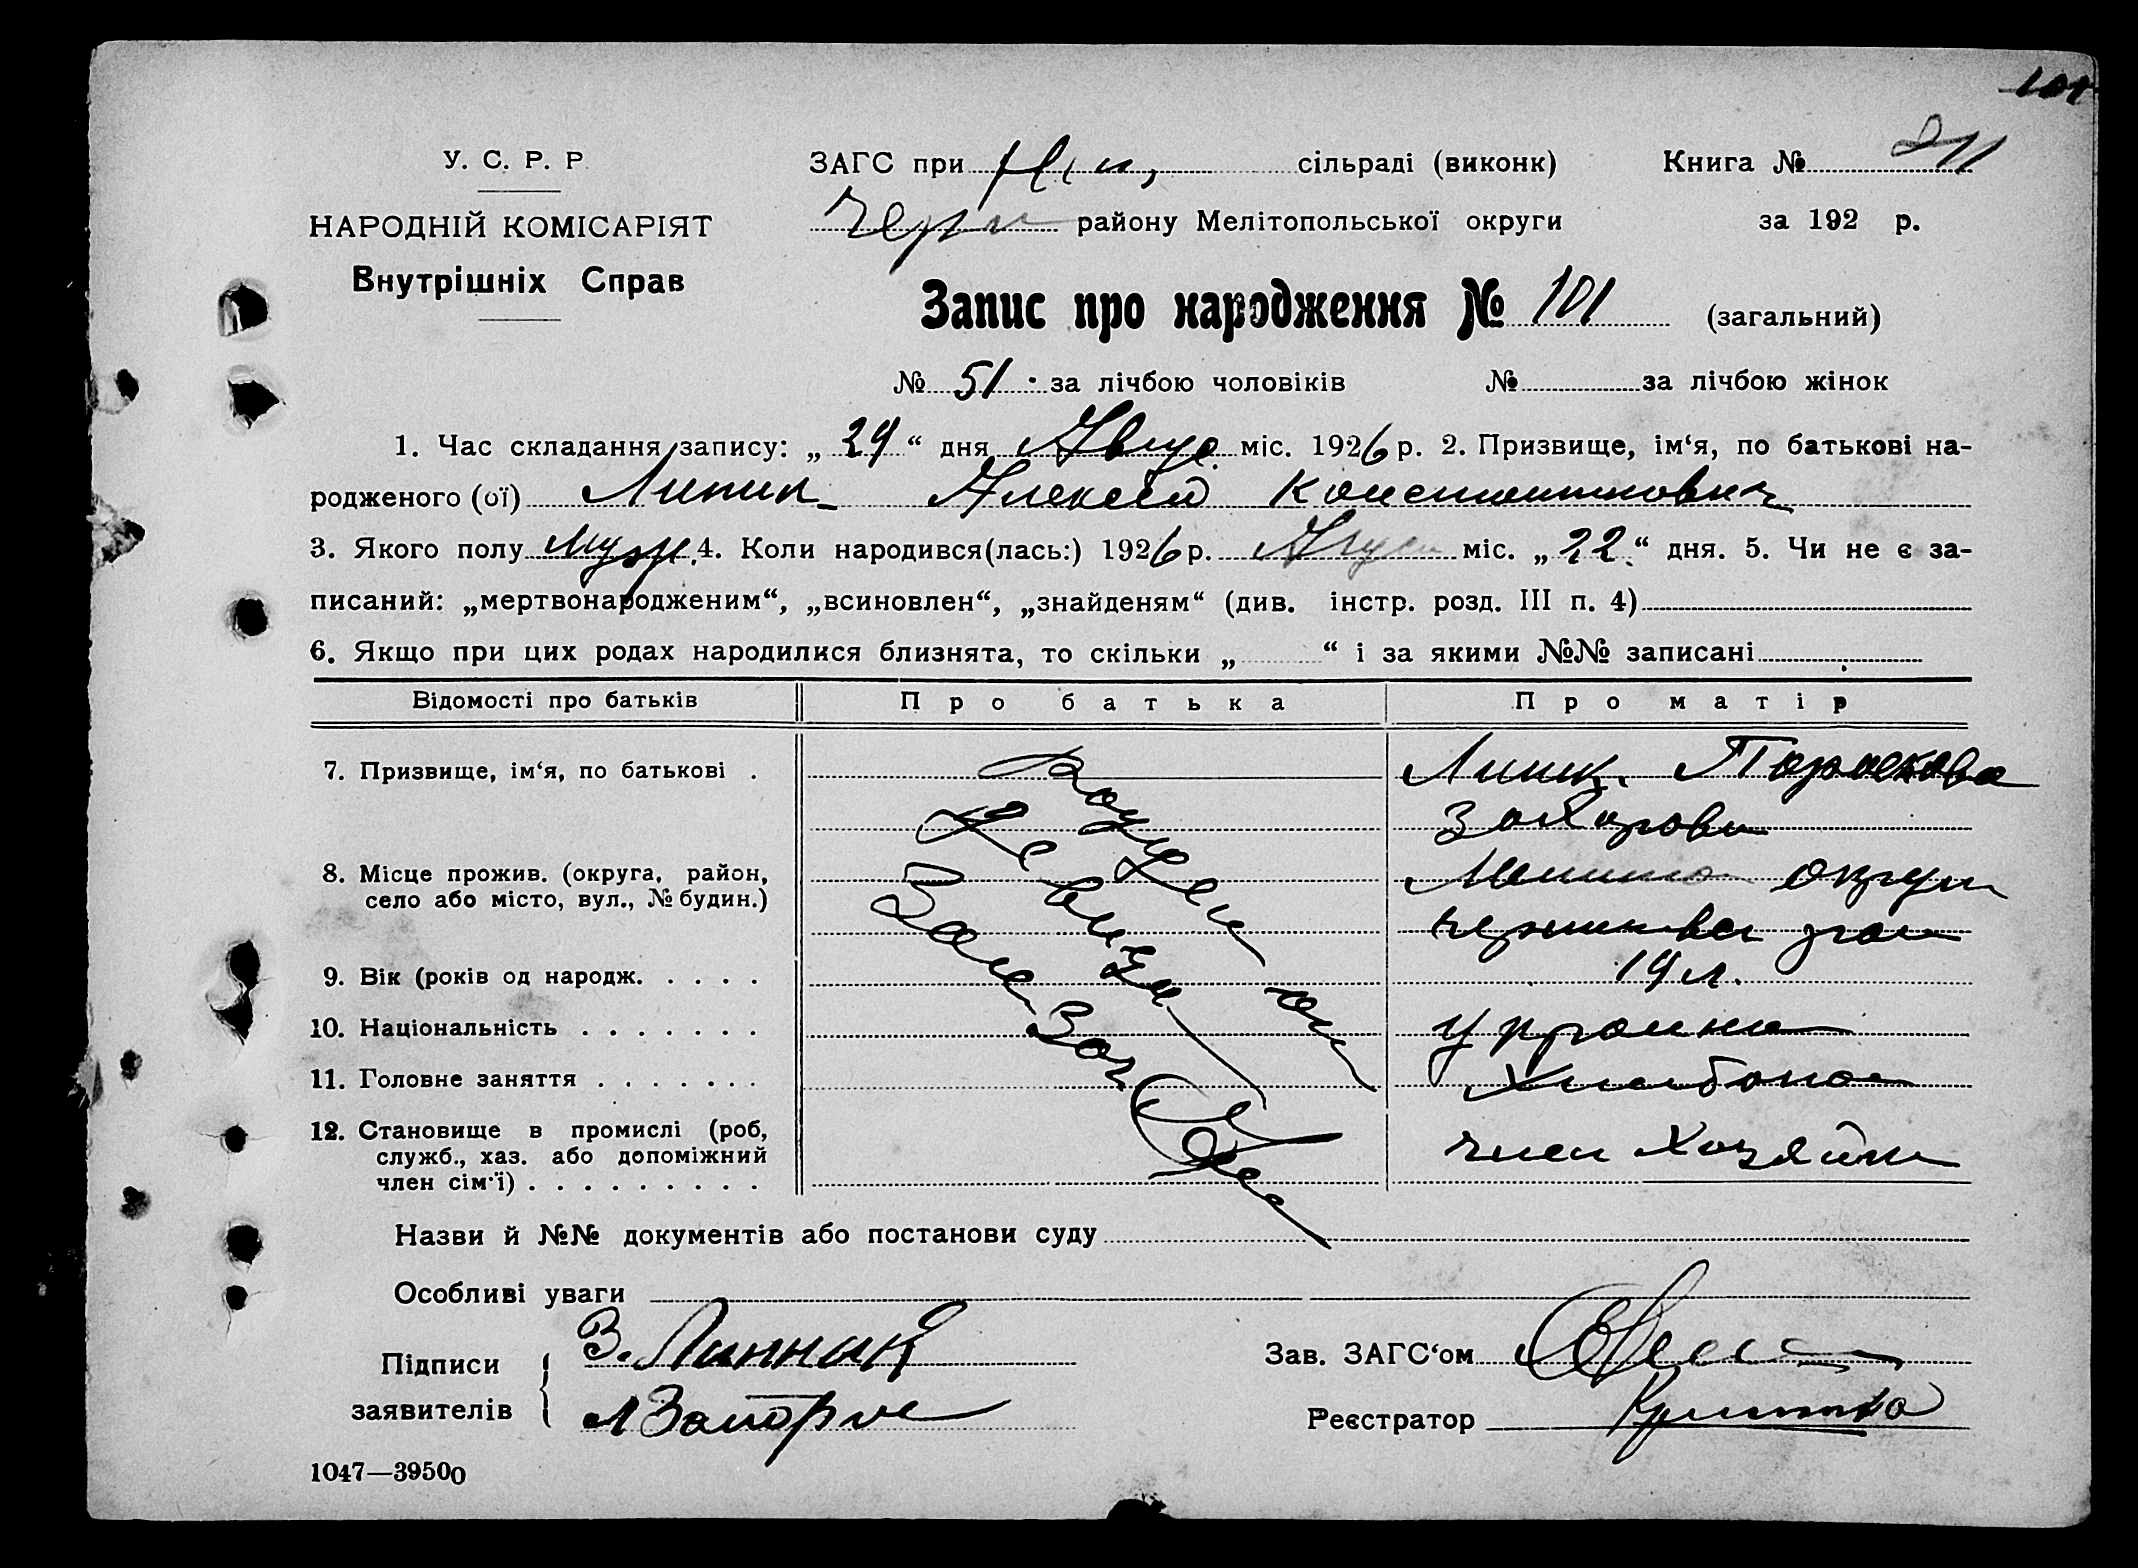 101
У. С. Р. Р.
НАРОДНІЙ КОМІСАРІЯТ
Внутрішніх Справ
ЗАГС при сільраді (виконк)
Книга №
Черн района Мелітопольської округи
за 192 р.
Запис про народження № 101 (загальний)
№ 51 за лічбою чоловіків № за лічбою жінок
1. Час складання запису: „24“ дня Авгус міс. 1926 р. 2. Призвище, ім‘я, по батькові на-
родженого (ої) Алексей Константинович
3. Якого полу муж. 4. Коли народився(лась:) 1926 р. Август міс. „22“ дня. 5. Чи не є за-
писаний: „мертвонародженим“, „всиновлен“, „знайденям“ (див. інстр. розд. III п. 4)
6. Якщо при цих родах народилися близнята, то скільки „ “ і за якими №№ записані
Відомості про батьків Про батька Про матір
7. Призвище, ім‘я, по батькові . Параскева
Захаровн
8. Місце прожив. (округа, район,
село або місто, вул., № будин.)
округи
9. Вік (років од народж. . . . . 19 л.
10. Національність . . . . . . . украинка
11. Головне заняття . . . . . . . Хлебопаш
12. Становище в промислі (роб,
служб., хаз. або допоміжний
член сім‘ї) . . . . . . . . .
член Хозяйн
Назви й №№ документів або постанови суду
Особливі уваги
Підписи
заявителів
З. Линник
Зав. ЗАГС‘ом
Реєстратор
1047—39500